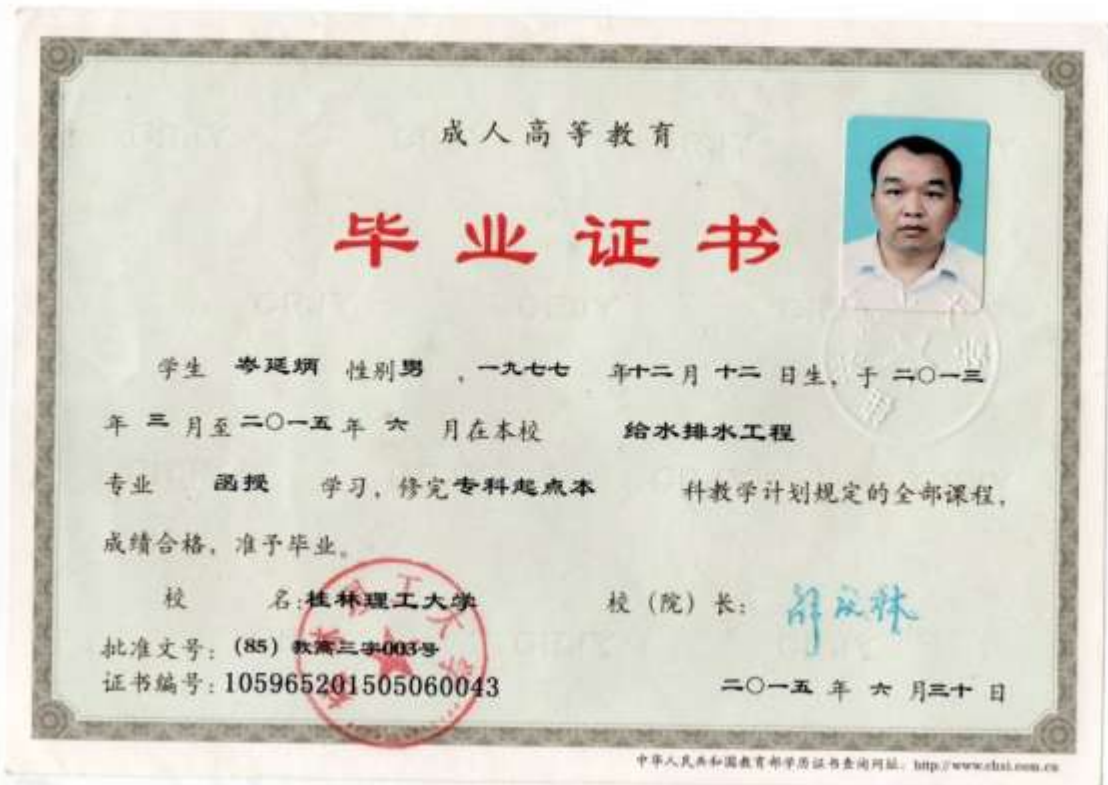 成人高等教育
毕业证书
学生 岑延炳 性别男 ,一九七七 年十二月 十二 日生,于 二〇一三
年 三 月至二〇一五 年 六 月在本校 给水排水工程
专业 函授 学习,修完专科起点本 科教学计划规定的全部课程,
成绩合格,准予毕业。
校 名:桂林理工大学 校(院)长:
批准文号:(85)教高三字003号
证书编号:105965201505060043 二〇一五 年 六 月三十 日
中华人民共和国教育部学历证书查询网址:http://www.chsi.com.cn